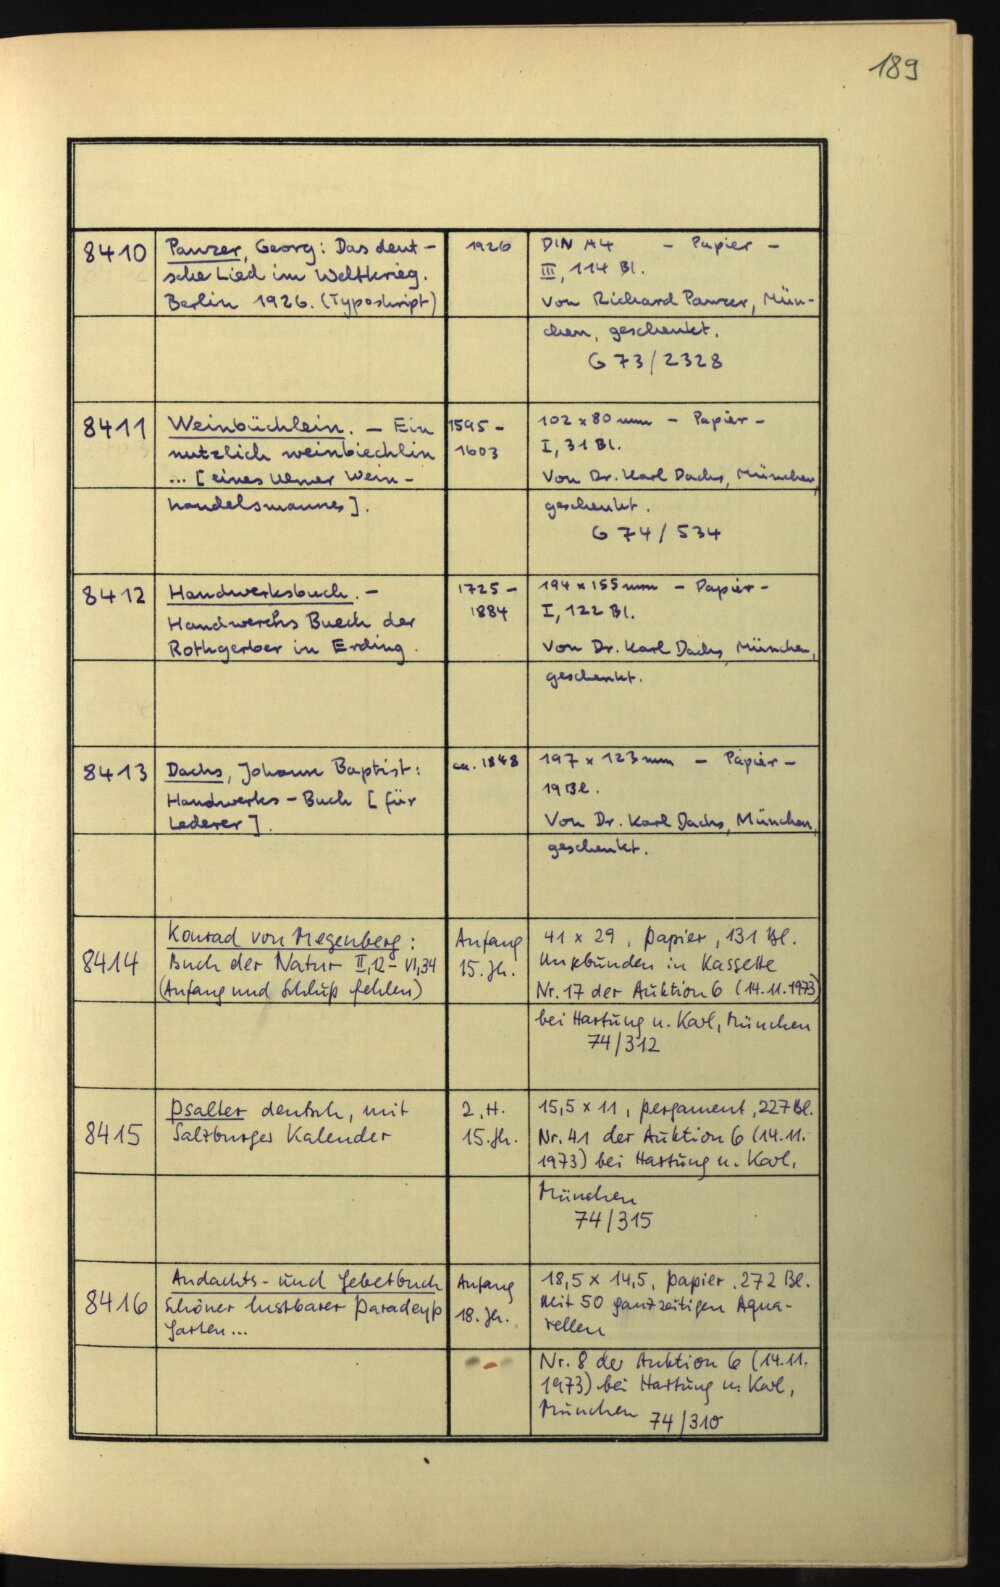 189
8410
Panzer, Georg: Das deut-
sche Lied im Weltkrieg.
Berlin 1926. (Typoskript)
1926
DIN A4 - Papier -
III, 114 Bl.
Von Richard Panzer, Mün-
chen, geschenkt.
G 73/2328
8411
Weinbüchlein. - Ein
nutzlich weinbiechlin
... [eines Ulmer Wein-
handelsmannes].
1595 -
1603
102 x 80 mm - Papier -
I, 31 Bl.
Von Dr. Karl Dachs, München,
geschenkt.
G 74/534
8412
Handwerksbuch. -
Handwerchs Buech der
Rothgerber in Erding.
1725 -
1884
194 x 155 mm - Papier -
I, 122 Bl.
Von Dr. Karl Dachs, München,
geschenkt.
8413
Dachs, Johann Baptist:
Handwerks-Buch [für
Lederer].
ca. 1848
197 x 123 mm - Papier -
19 Bl.
Von Dr. Karl Dachs, München,
geschenkt.
8414
Konrad von Megenberg:
Buch der Natur II,12 - VI,34
(Anfang und Schluß fehlen)
Anfang
15. Jh.
41 x 29, Papier, 131 Bl.
Ungebunden in Kassette
Nr. 17 der Auktion 6 (14.11.1973)
bei Hartung u. Karl, München
74/312
8415
Psalter deutsch, mit
Salzburger Kalender
2. H.
15. Jh.
15,5 x 11, Pergament, 227 Bl.
Nr. 41 der Auktion 6 (14.11.
1973) bei Hartung u. Karl,
München
74/315
8416
Andachts- und Gebetbuch
Schöner lustbarer Paradeyß
Garten...
Anfang
18. Jh.
18,5 x 14,5, Papier, 272 Bl.
Mit 50 ganzseitigen Aqua-
rellen
Nr. 8 der Auktion 6 (14.11.
1973) bei Hartung u. Karl,
München 74/310